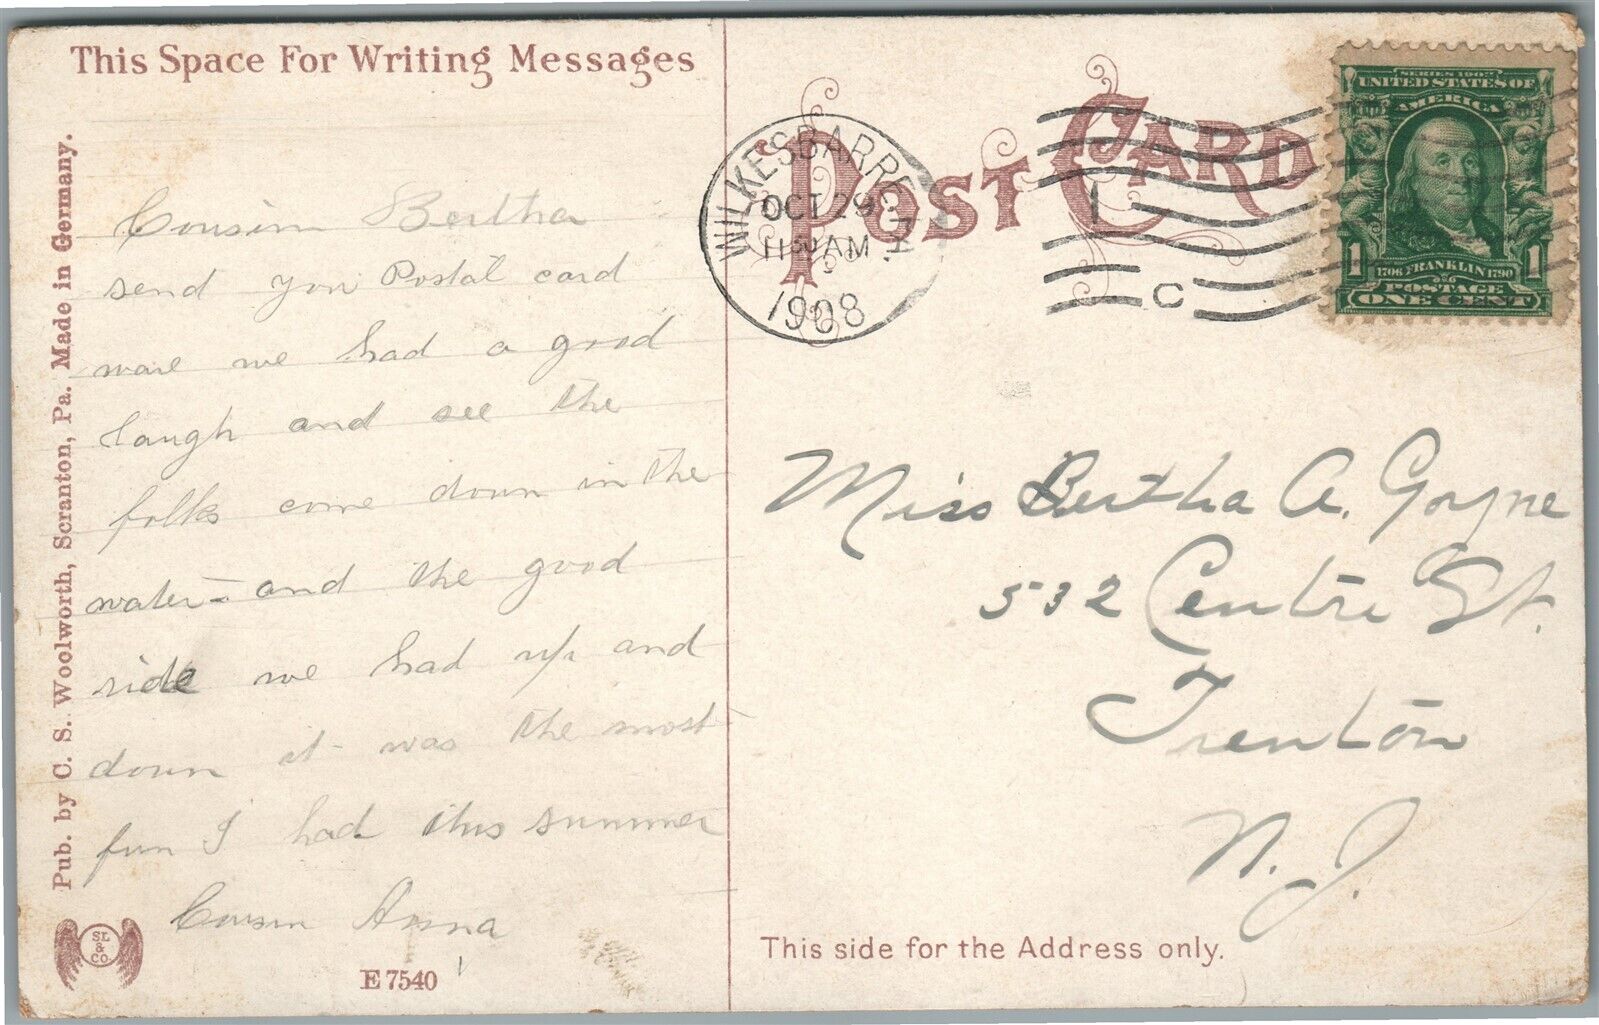 This Space For Writing Messages
Pub. by C. S. Woolworth, Scranton, Pa. Made in Germany.
Cousin Bertha
send you Postal card
ware we had a good
laugh and see the
folks come down in the
water - and the good
ride we had up and
down it was the most
fun I had this summer
Cousin Anna
SL
&
CO
E 7540
POST CARD
WILKESBARRE PA.
OCT 29
11 30 AM
1908
1
C
SERIES 1902
UNITED STATES OF
AMERICA
1 1
1706 FRANKLIN 1790
POSTAGE
ONE CENT
Miss Bertha A. Goyne
532 Centre St.
Trenton
N. J.
This side for the Address only.